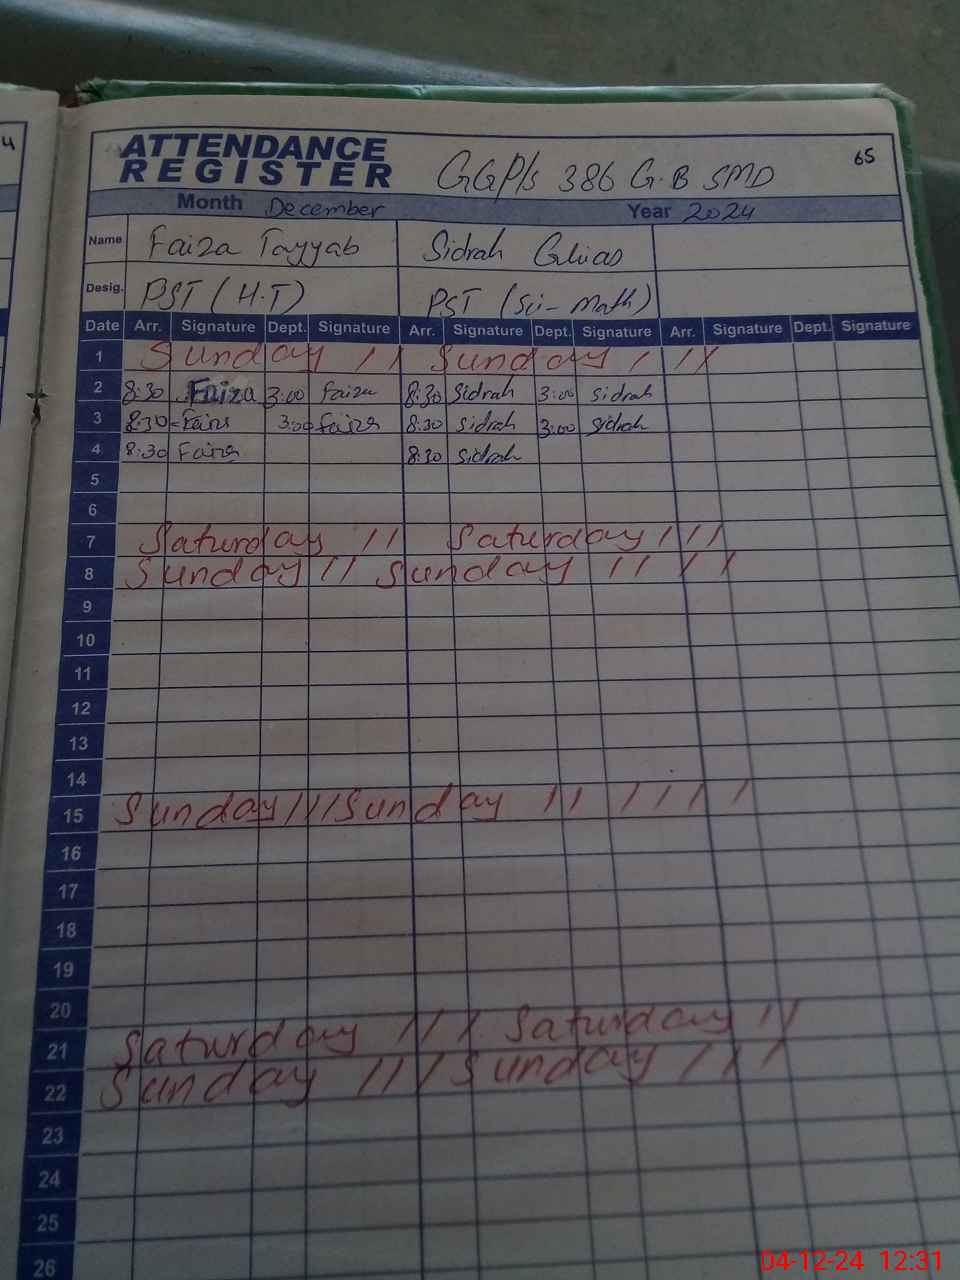 4
ATTENDANCE
REGISTER
GGP/s 386 G.B SMD
65
Month December Year 2024
Name Faiza Tayyab Sidrah Ghias
Desig. PST (H.T) PST (Sci-Math)
Date Arr. Signature Dept. Signature Arr. Signature Dept. Signature Arr. Signature Dept. Signature
1 Sunday // Sunday / //
2 8:30 Faiza 3:00 Faiza 8:30 Sidrah 3:00 Sidrah
3 8:30 Faiza 3:00 Faiza 8:30 Sidrah 3:00 Sidrah
4 8:30 Faiza 8:30 Sidrah
5
6
7 Saturday // Saturday ///
8 Sunday // Sunday // //
9
10
11
12
13
14
15 Sunday /// Sunday // ////
16
17
18
19
20
21 Saturday /// Saturday //
22 Sunday /// Sunday ///
23
24
25
26
04-12-24 12:31